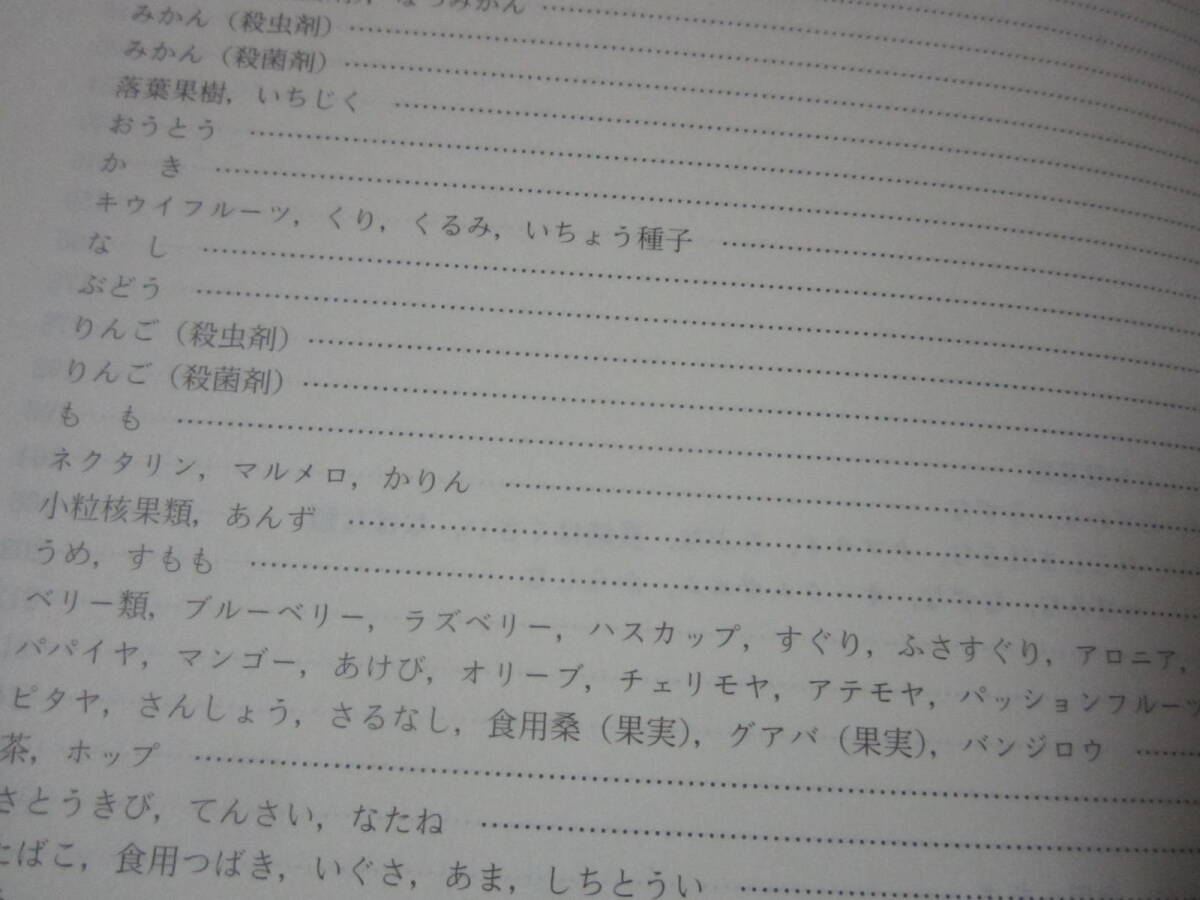 なつみかん
みかん（殺虫剤）
みかん（殺菌剤）
落葉果樹，いちじく
おうとう
か き
キウイフルーツ，くり，くるみ，いちょう種子
な し
ぶどう
りんご（殺虫剤）
りんご（殺菌剤）
も も
ネクタリン，マルメロ，かりん
小粒核果類，あんず
うめ，すもも
ベリー類，ブルーベリー，ラズベリー，ハスカップ，すぐり，ふさすぐり，アロニア，
パパイヤ，マンゴー，あけび，オリーブ，チェリモヤ，アテモヤ，パッションフルーツ
ピタヤ，さんしょう，さるなし，食用桑（果実），グアバ（果実），バンジロウ
茶，ホップ
さとうきび，てんさい，なたね
たばこ，食用つばき，いぐさ，あま，しちとうい